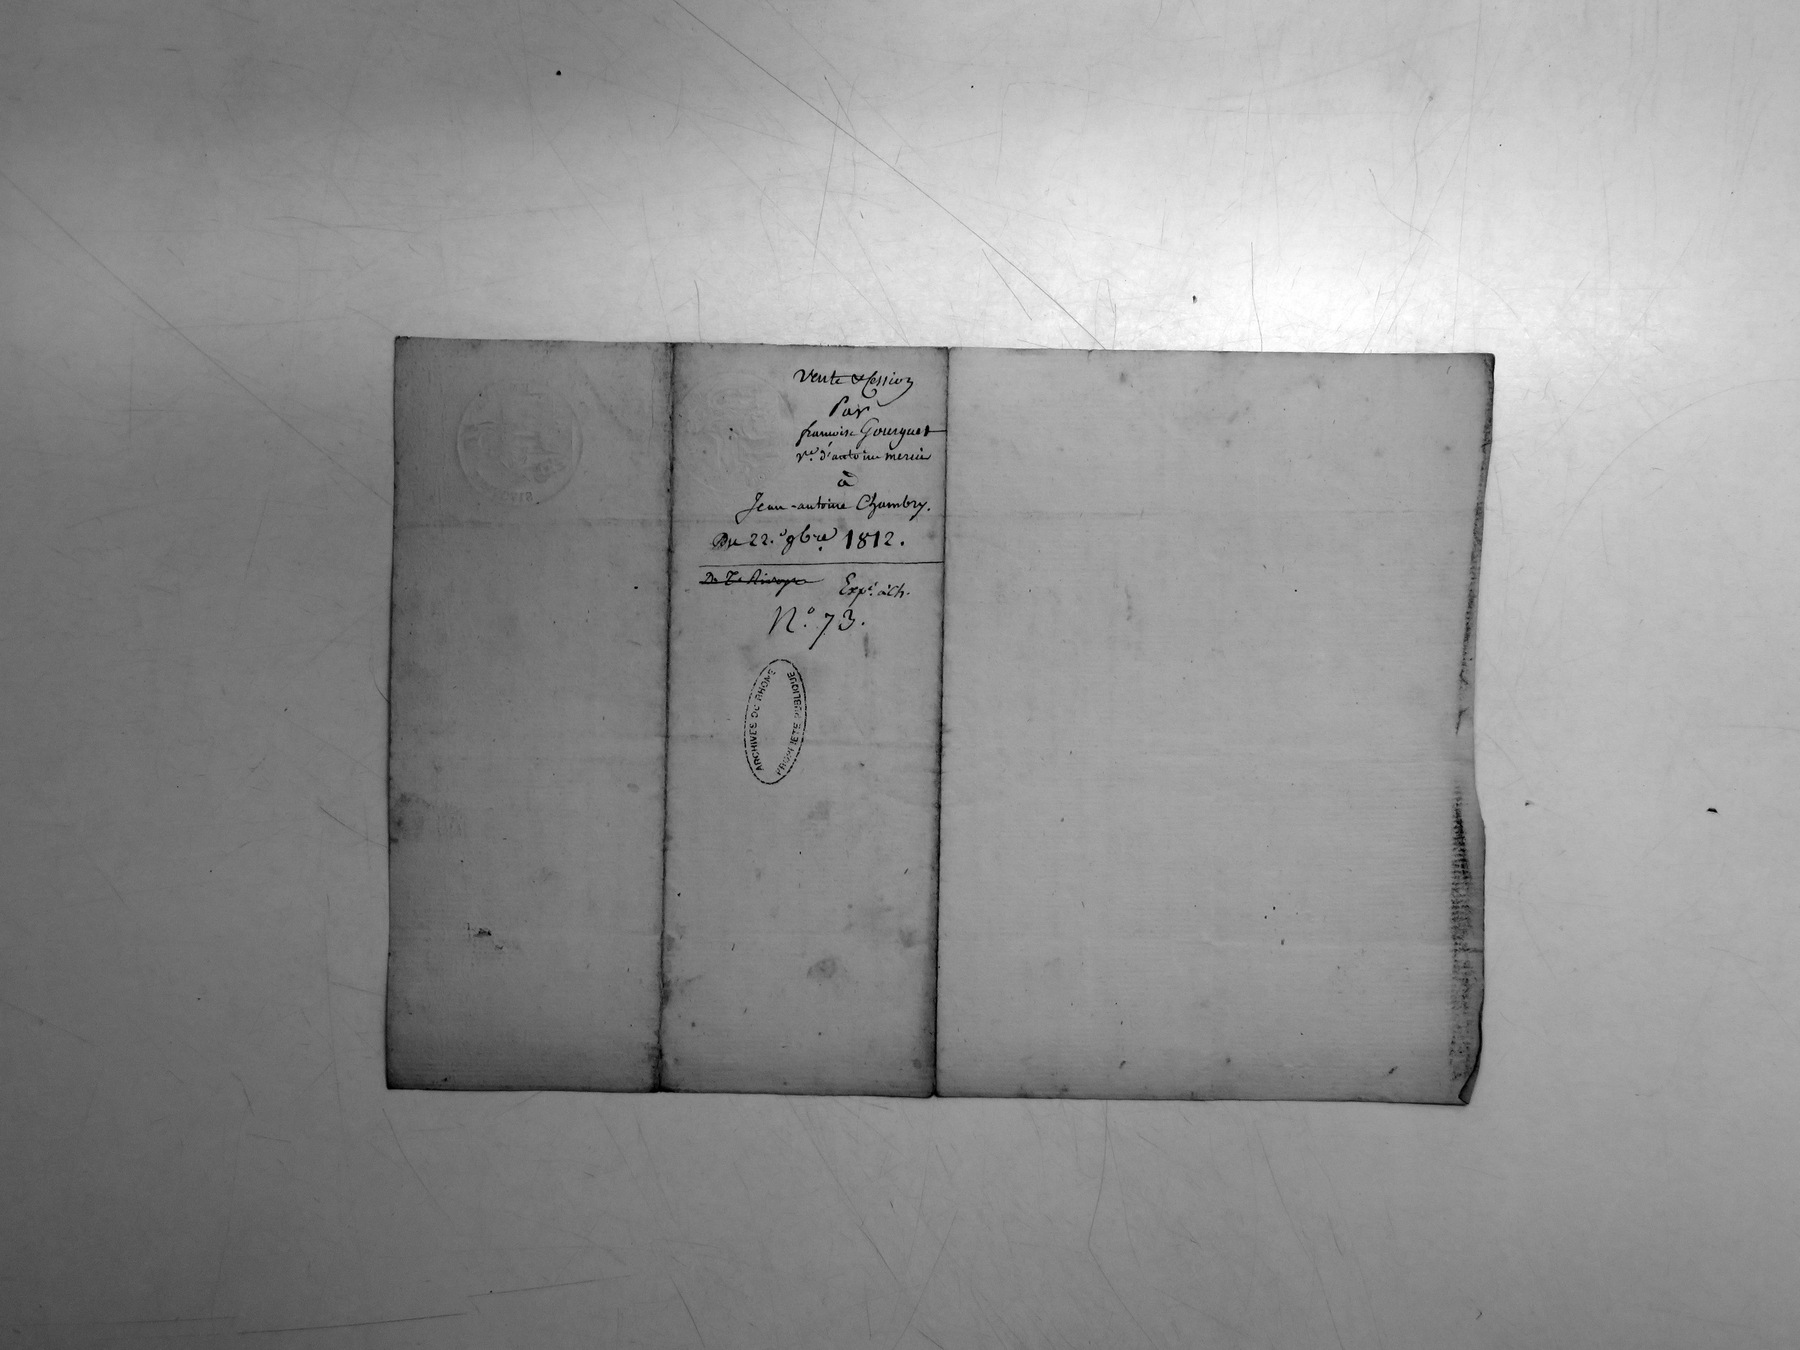 Vente & Cession
Par
francoise Gourguet
Ve. d'antoine mercier
à
Jean-antoine Chambry.
Du 22. 9bre. 1812.
Expé. à Ch.
N.° 73.
ARCHIVES DU RHONE
PROPRIETE PUBLIQUE